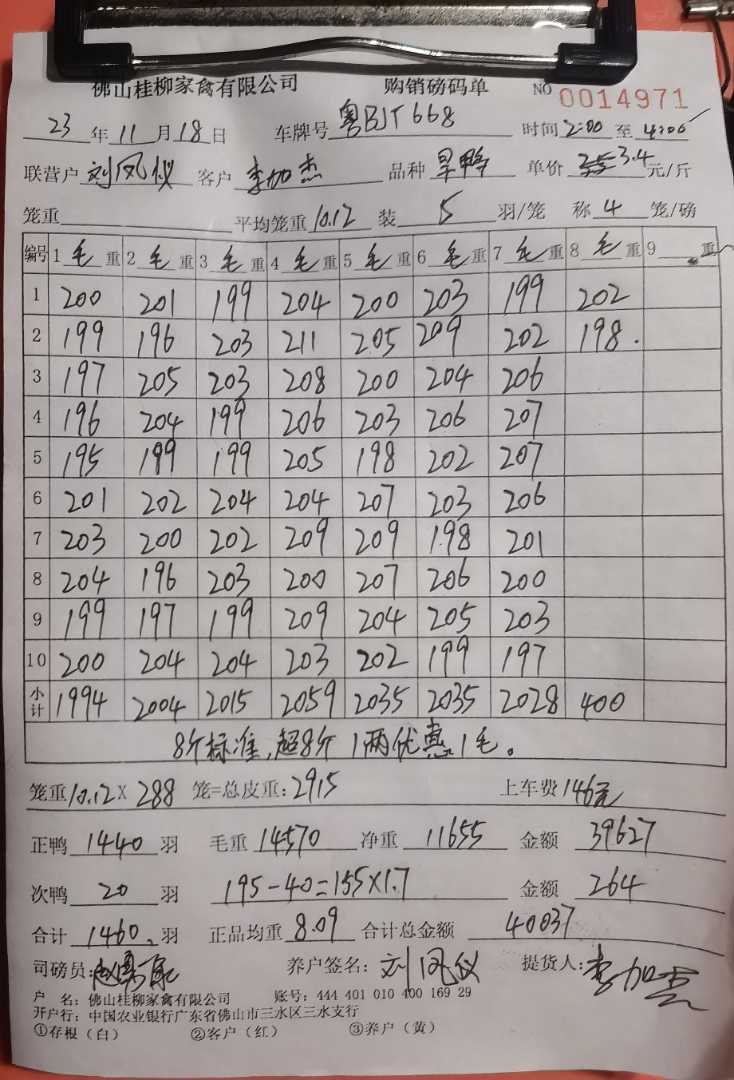 佛山桂柳家禽有限公司 购销磅码单 NO 0014971
23年11月18日 车牌号粤BJT668 时间2:00至4:00
联营户刘凤仪 客户李加杰 品种旱鸭 单价3.4元/斤
笼重 平均笼重10.12 装5羽/笼 称4笼/磅
编号 1毛重 2毛重 3毛重 4毛重 5毛重 6毛重 7毛重 8毛重 9重
1 200 201 199 204 200 203 199 202
2 199 196 203 211 205 209 202 198.
3 197 205 203 208 200 204 206
4 196 204 199 206 203 206 207
5 195 199 199 205 198 202 207
6 201 202 204 204 207 203 206
7 203 200 202 209 209 198 201
8 204 196 203 200 207 206 200
9 199 197 199 209 204 205 203
10 200 204 204 203 202 199 197
小计 1994 2004 2015 2059 2035 2035 2028 400
8斤标准,超8斤1两优惠1毛。
笼重10.12×288笼=总皮重:2915 上车费146元
正鸭1440羽 毛重14570 净重11655 金额39627
次鸭20羽 195-40=155×1.7 金额264
合计1460羽 正品均重8.09 合计总金额40037
司磅员: 养户签名:刘凤仪 提货人:李加杰
户 名:佛山桂柳家禽有限公司 账号:444 401 010 400 169 29
开户行:中国农业银行广东省佛山市三水区三水支行
①存根(白) ②客户(红) ③养户(黄)